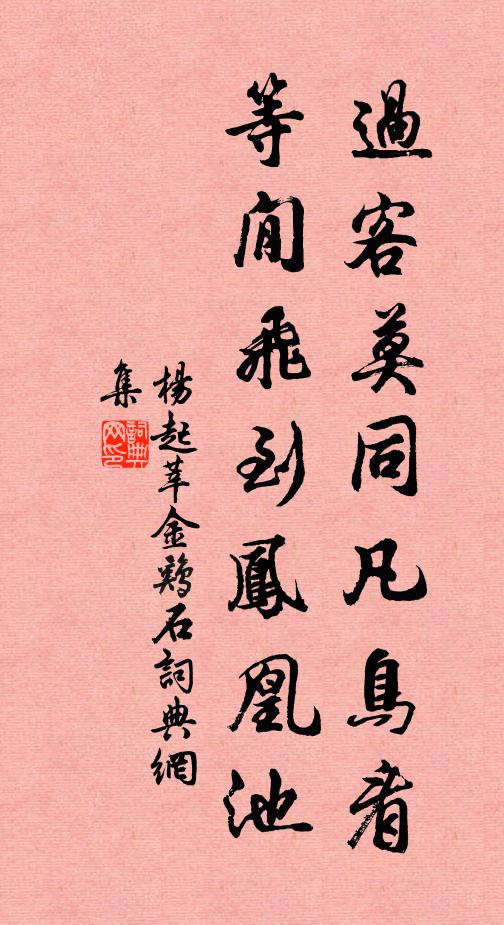 過客莫同凡鳥看
等閒飛到鳳凰池
楊起莘金鷄石詞典網
集
詞典网印